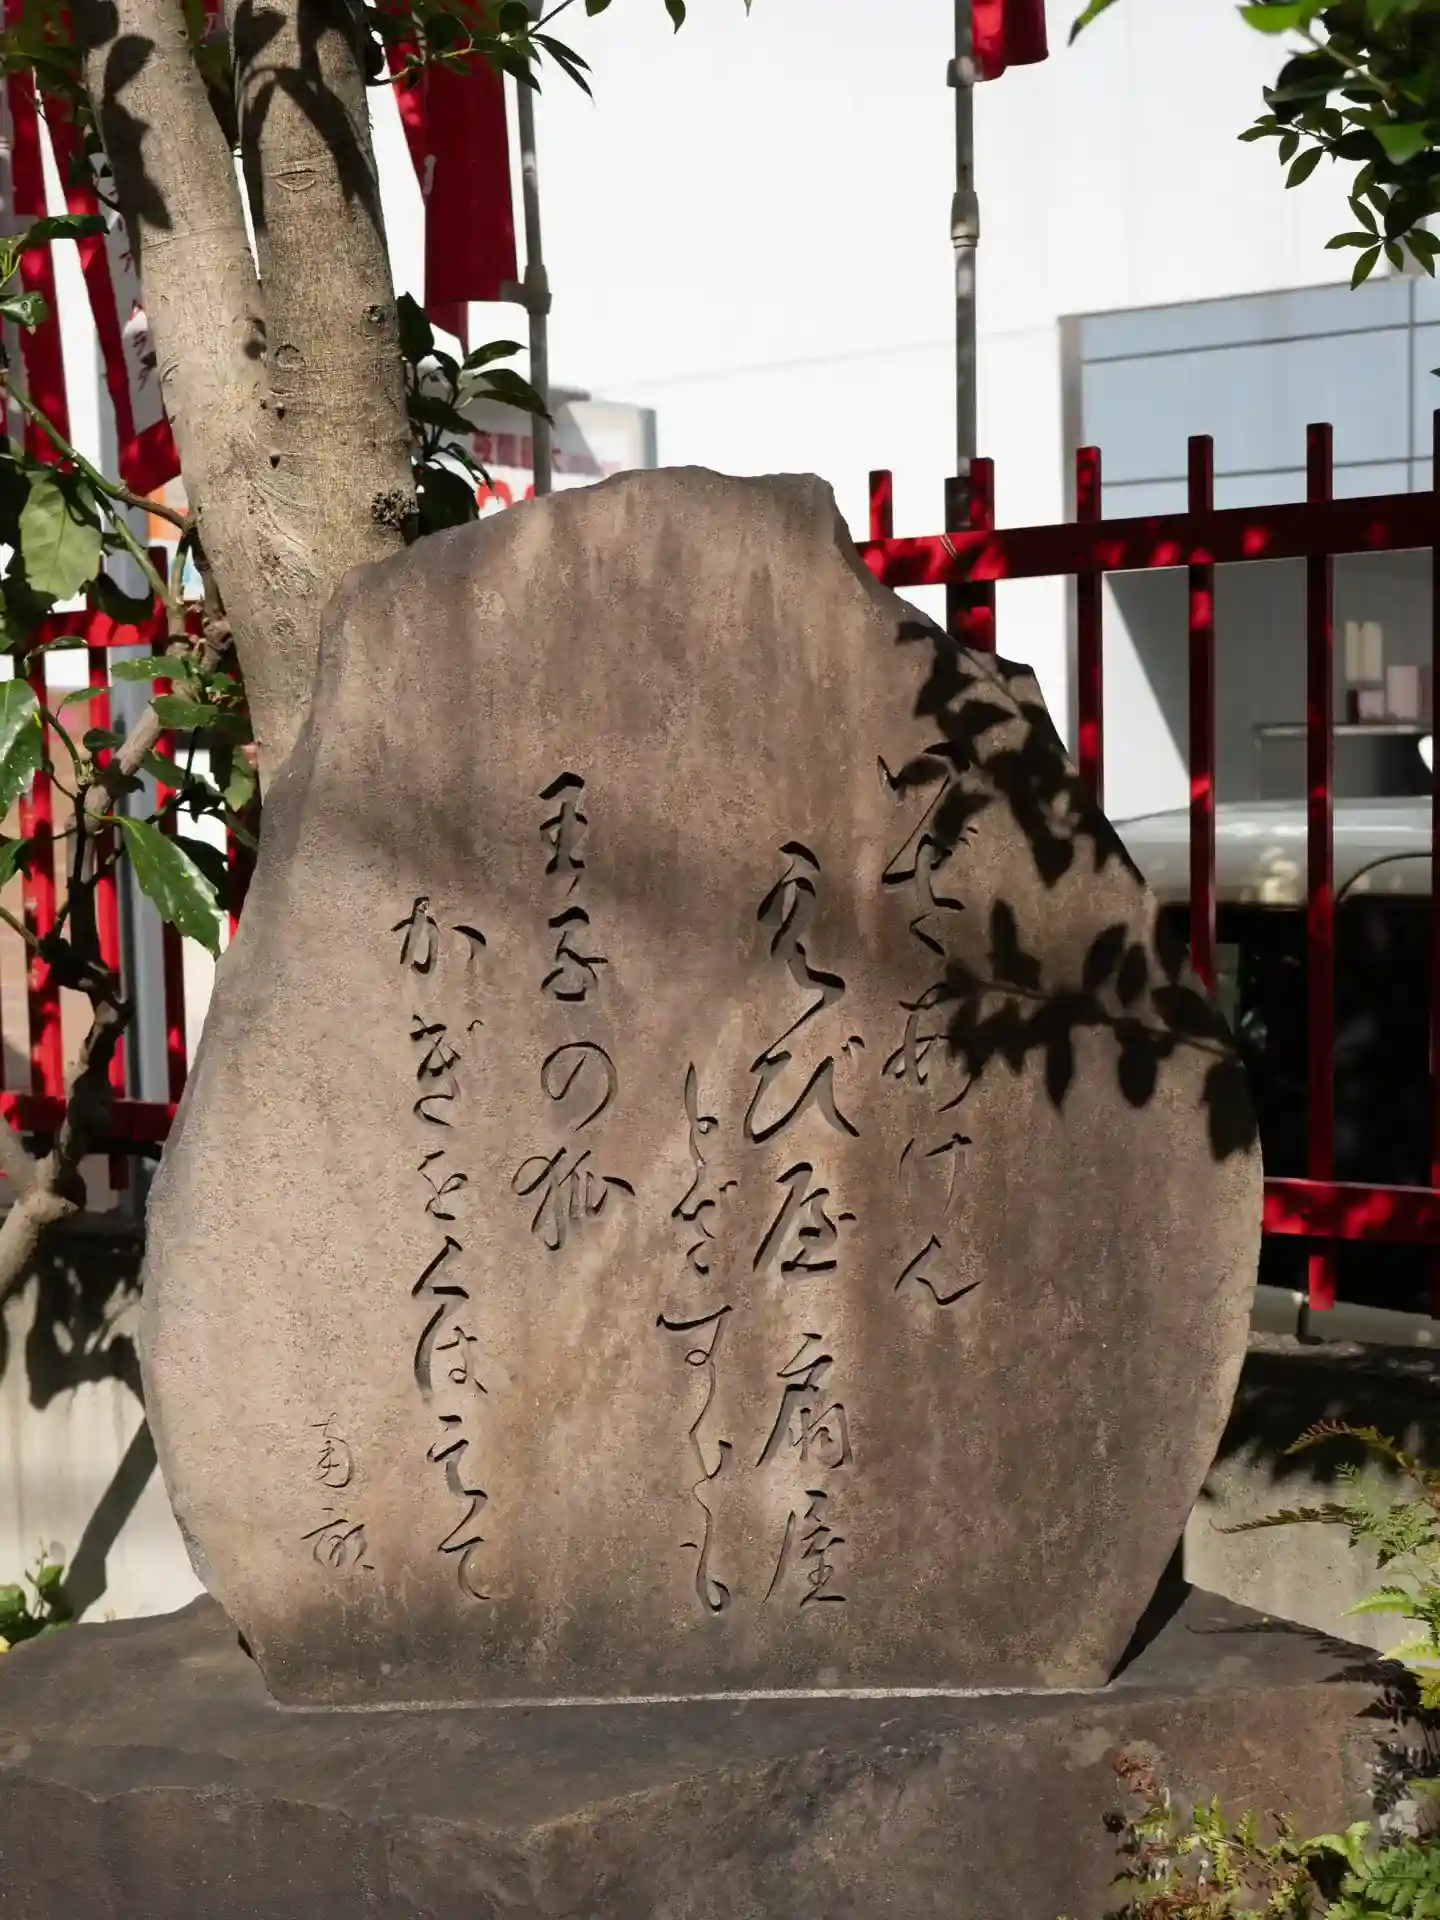 いざあけん
えび屋扇屋
とざすとも
王子の狐
かぎをくはえて
南畝